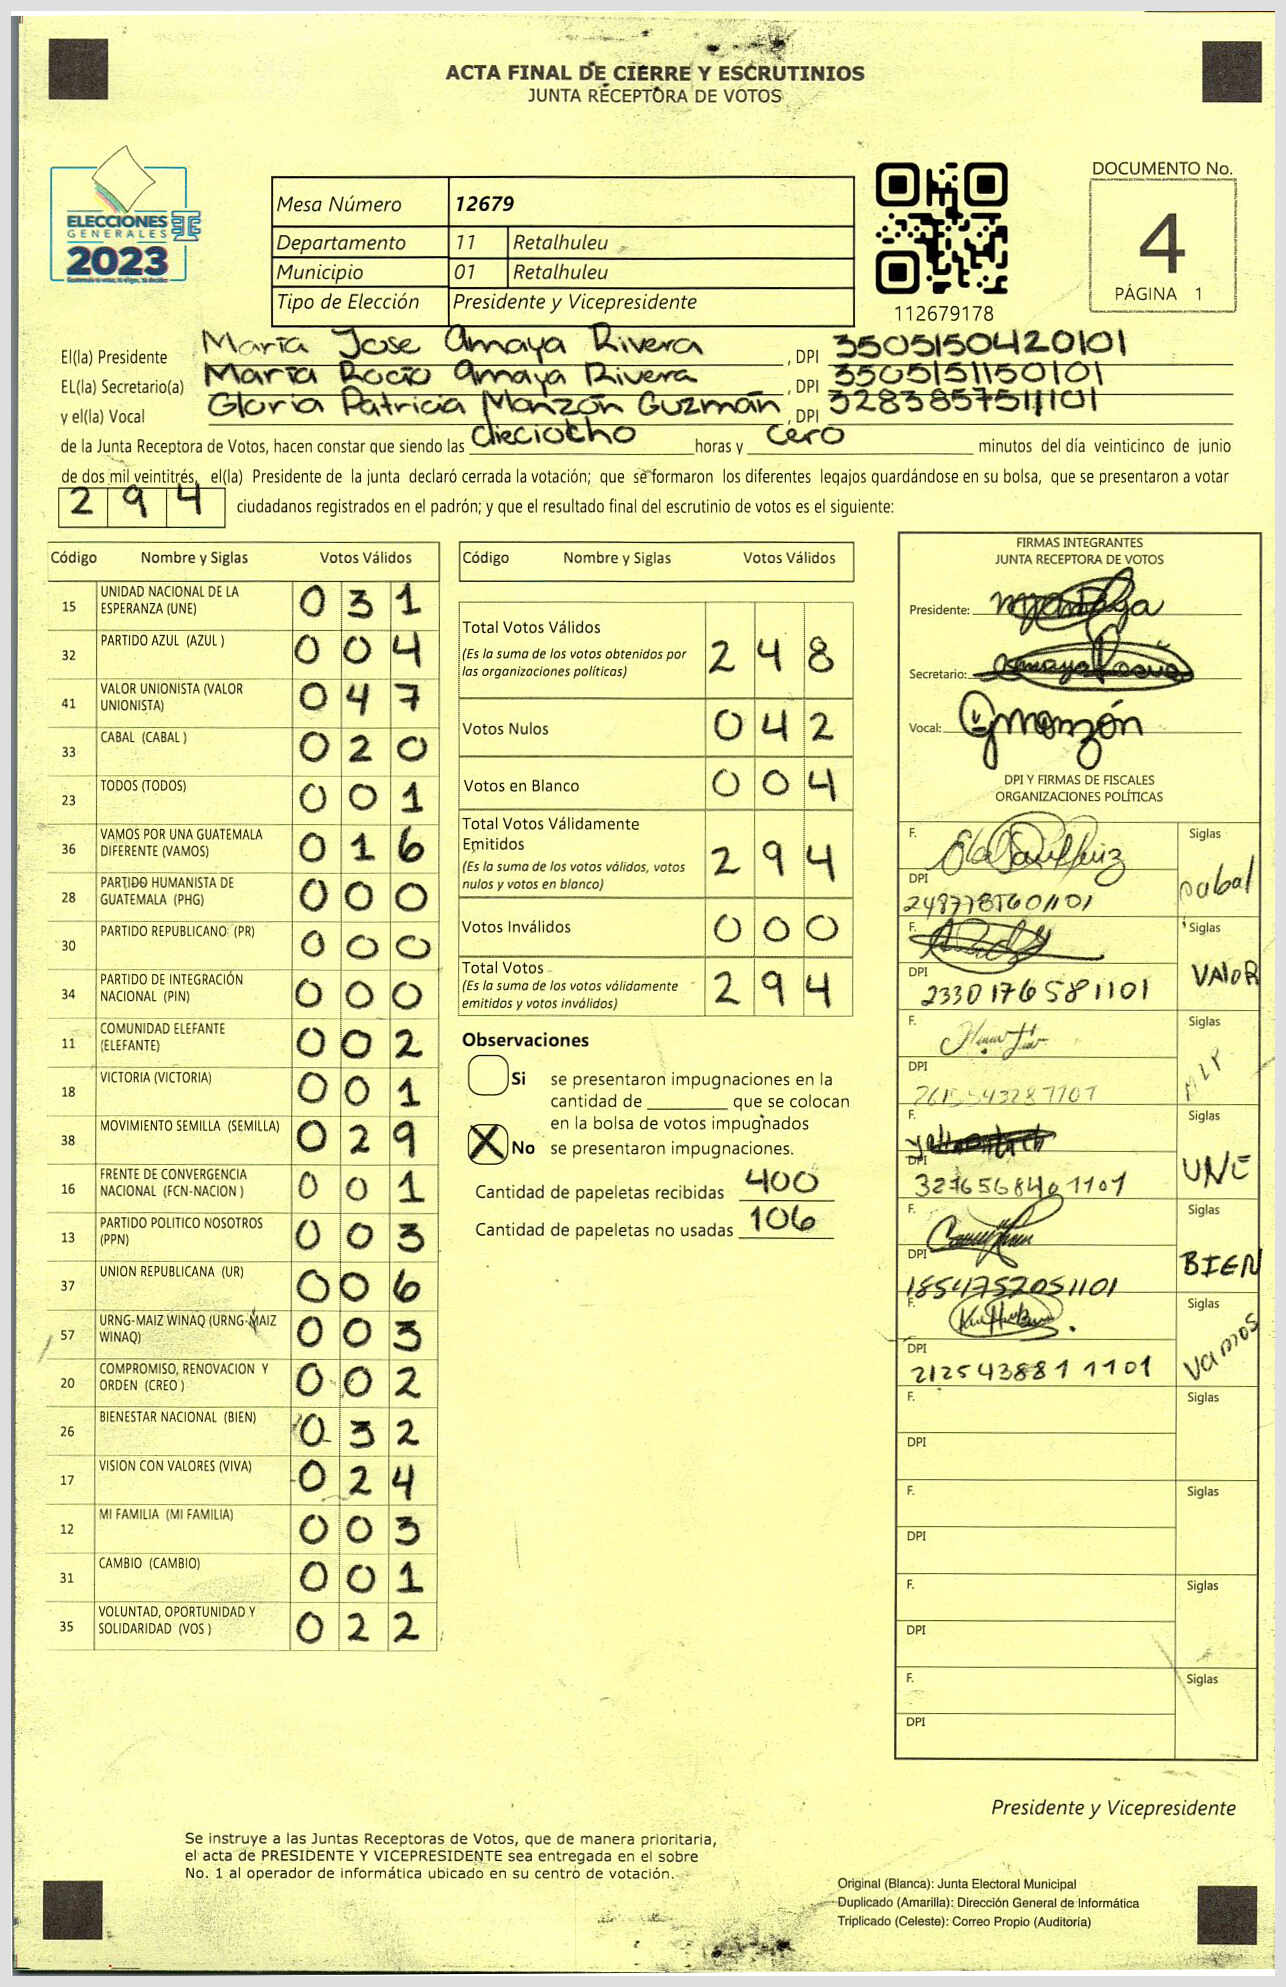 ACTA FINAL DE CIERRE Y ESCRUTINIOS
JUNTA RECEPTORA DE VOTOS
ELECCIONES
GENERALES
2023
Mesa Número 12679
Departamento 11 Retalhuleu
Municipio 01 Retalhuleu
Tipo de Elección Presidente y Vicepresidente
112679178
DOCUMENTO No.
4
PÁGINA 1
El(la) Presidente Maria Jose Amaya Rivera, DPI 3505150420101
EL(la) Secretario(a) Maria Rocio Amaya Rivera, DPI 3505151150101
y el(la) Vocal Gloria Patricia Monzón Guzmán, DPI 3283857511101
de la Junta Receptora de Votos, hacen constar que siendo las dieciocho horas y cero minutos del día veinticinco de junio
de dos mil veintitrés, el(la) Presidente de la junta declaró cerrada la votación; que se formaron los diferentes legajos guardándose en su bolsa, que se presentaron a votar
294 ciudadanos registrados en el padrón; y que el resultado final del escrutinio de votos es el siguiente:
Código Nombre y Siglas Votos Válidos
15 UNIDAD NACIONAL DE LA ESPERANZA (UNE) 031
32 PARTIDO AZUL (AZUL ) 004
41 VALOR UNIONISTA (VALOR UNIONISTA) 047
33 CABAL (CABAL ) 020
23 TODOS (TODOS) 001
36 VAMOS POR UNA GUATEMALA DIFERENTE (VAMOS) 016
28 PARTIDO HUMANISTA DE GUATEMALA (PHG) 000
30 PARTIDO REPUBLICANO (PR) 000
34 PARTIDO DE INTEGRACIÓN NACIONAL (PIN) 000
11 COMUNIDAD ELEFANTE (ELEFANTE) 002
18 VICTORIA (VICTORIA) 001
38 MOVIMIENTO SEMILLA (SEMILLA) 029
16 FRENTE DE CONVERGENCIA NACIONAL (FCN-NACION ) 001
13 PARTIDO POLITICO NOSOTROS (PPN) 003
37 UNION REPUBLICANA (UR) 006
57 URNG-MAIZ WINAQ (URNG-MAIZ WINAQ) 003
20 COMPROMISO, RENOVACION Y ORDEN (CREO ) 002
26 BIENESTAR NACIONAL (BIEN) 032
17 VISION CON VALORES (VIVA) 024
12 MI FAMILIA (MI FAMILIA) 003
31 CAMBIO (CAMBIO) 001
35 VOLUNTAD, OPORTUNIDAD Y SOLIDARIDAD (VOS ) 022
Código Nombre y Siglas Votos Válidos
Total Votos Válidos 248
(Es la suma de los votos obtenidos por
las organizaciones políticas)
Votos Nulos 042
Votos en Blanco 004
Total Votos Válidamente
Emitidos 294
(Es la suma de los votos válidos, votos
nulos y votos en blanco)
Votos Inválidos 000
Total Votos 294
(Es la suma de los votos válidamente
emitidos y votos inválidos)
Observaciones
Si se presentaron impugnaciones en la
cantidad de ________ que se colocan
en la bolsa de votos impugnados
X No se presentaron impugnaciones.
Cantidad de papeletas recibidas 400
Cantidad de papeletas no usadas 106
FIRMAS INTEGRANTES
JUNTA RECEPTORA DE VOTOS
Presidente:
Secretario:
Vocal: Gmonzón
DPI Y FIRMAS DE FISCALES
ORGANIZACIONES POLÍTICAS
F. Siglas cabal
DPI
F. Siglas VALOR
DPI 2330176581101
F. Siglas MLP
DPI
F. Siglas UNE
DPI 3276568461101
F. Siglas BIEN
DPI 1854757051101
F. Siglas Vamos
DPI 2125438811101
F. Siglas
DPI
F. Siglas
DPI
F. Siglas
DPI
F. Siglas
DPI
Presidente y Vicepresidente
Se instruye a las Juntas Receptoras de Votos, que de manera prioritaria,
el acta de PRESIDENTE Y VICEPRESIDENTE sea entregada en el sobre
No. 1 al operador de informática ubicado en su centro de votación.
Original (Blanca): Junta Electoral Municipal
Duplicado (Amarilla): Dirección General de Informática
Triplicado (Celeste): Correo Propio (Auditoria)